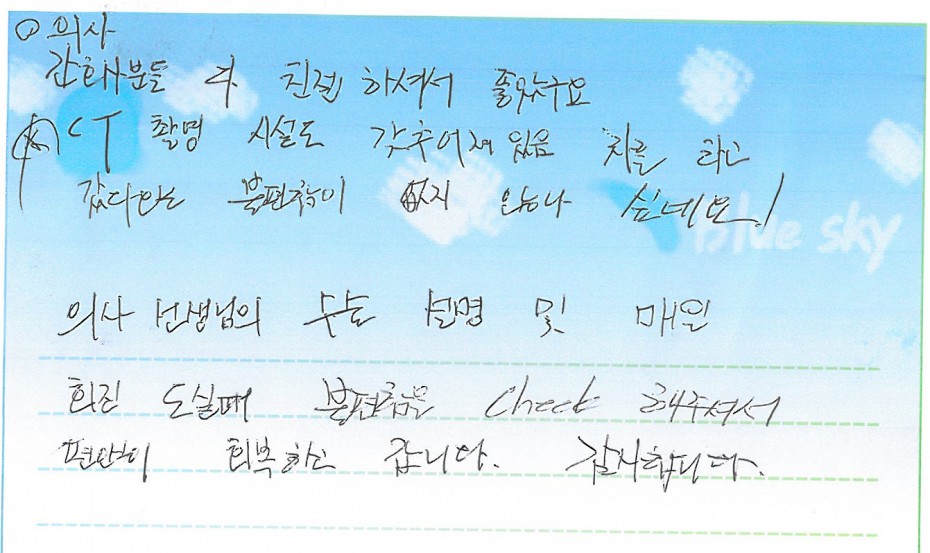 ○ 의사
간호사분들 다 친절 하셔서 좋았구요
CT 촬영 시설도 갖추어져 있음 차를 타고
갔다오는 불편함이 없지 않나 싶네요!
blue sky
의사 선생님의 수술 설명 및 매일
회진 도실때 불편함을 Check 해주셔서
편안히 회복하고 갑니다. 감사합니다.